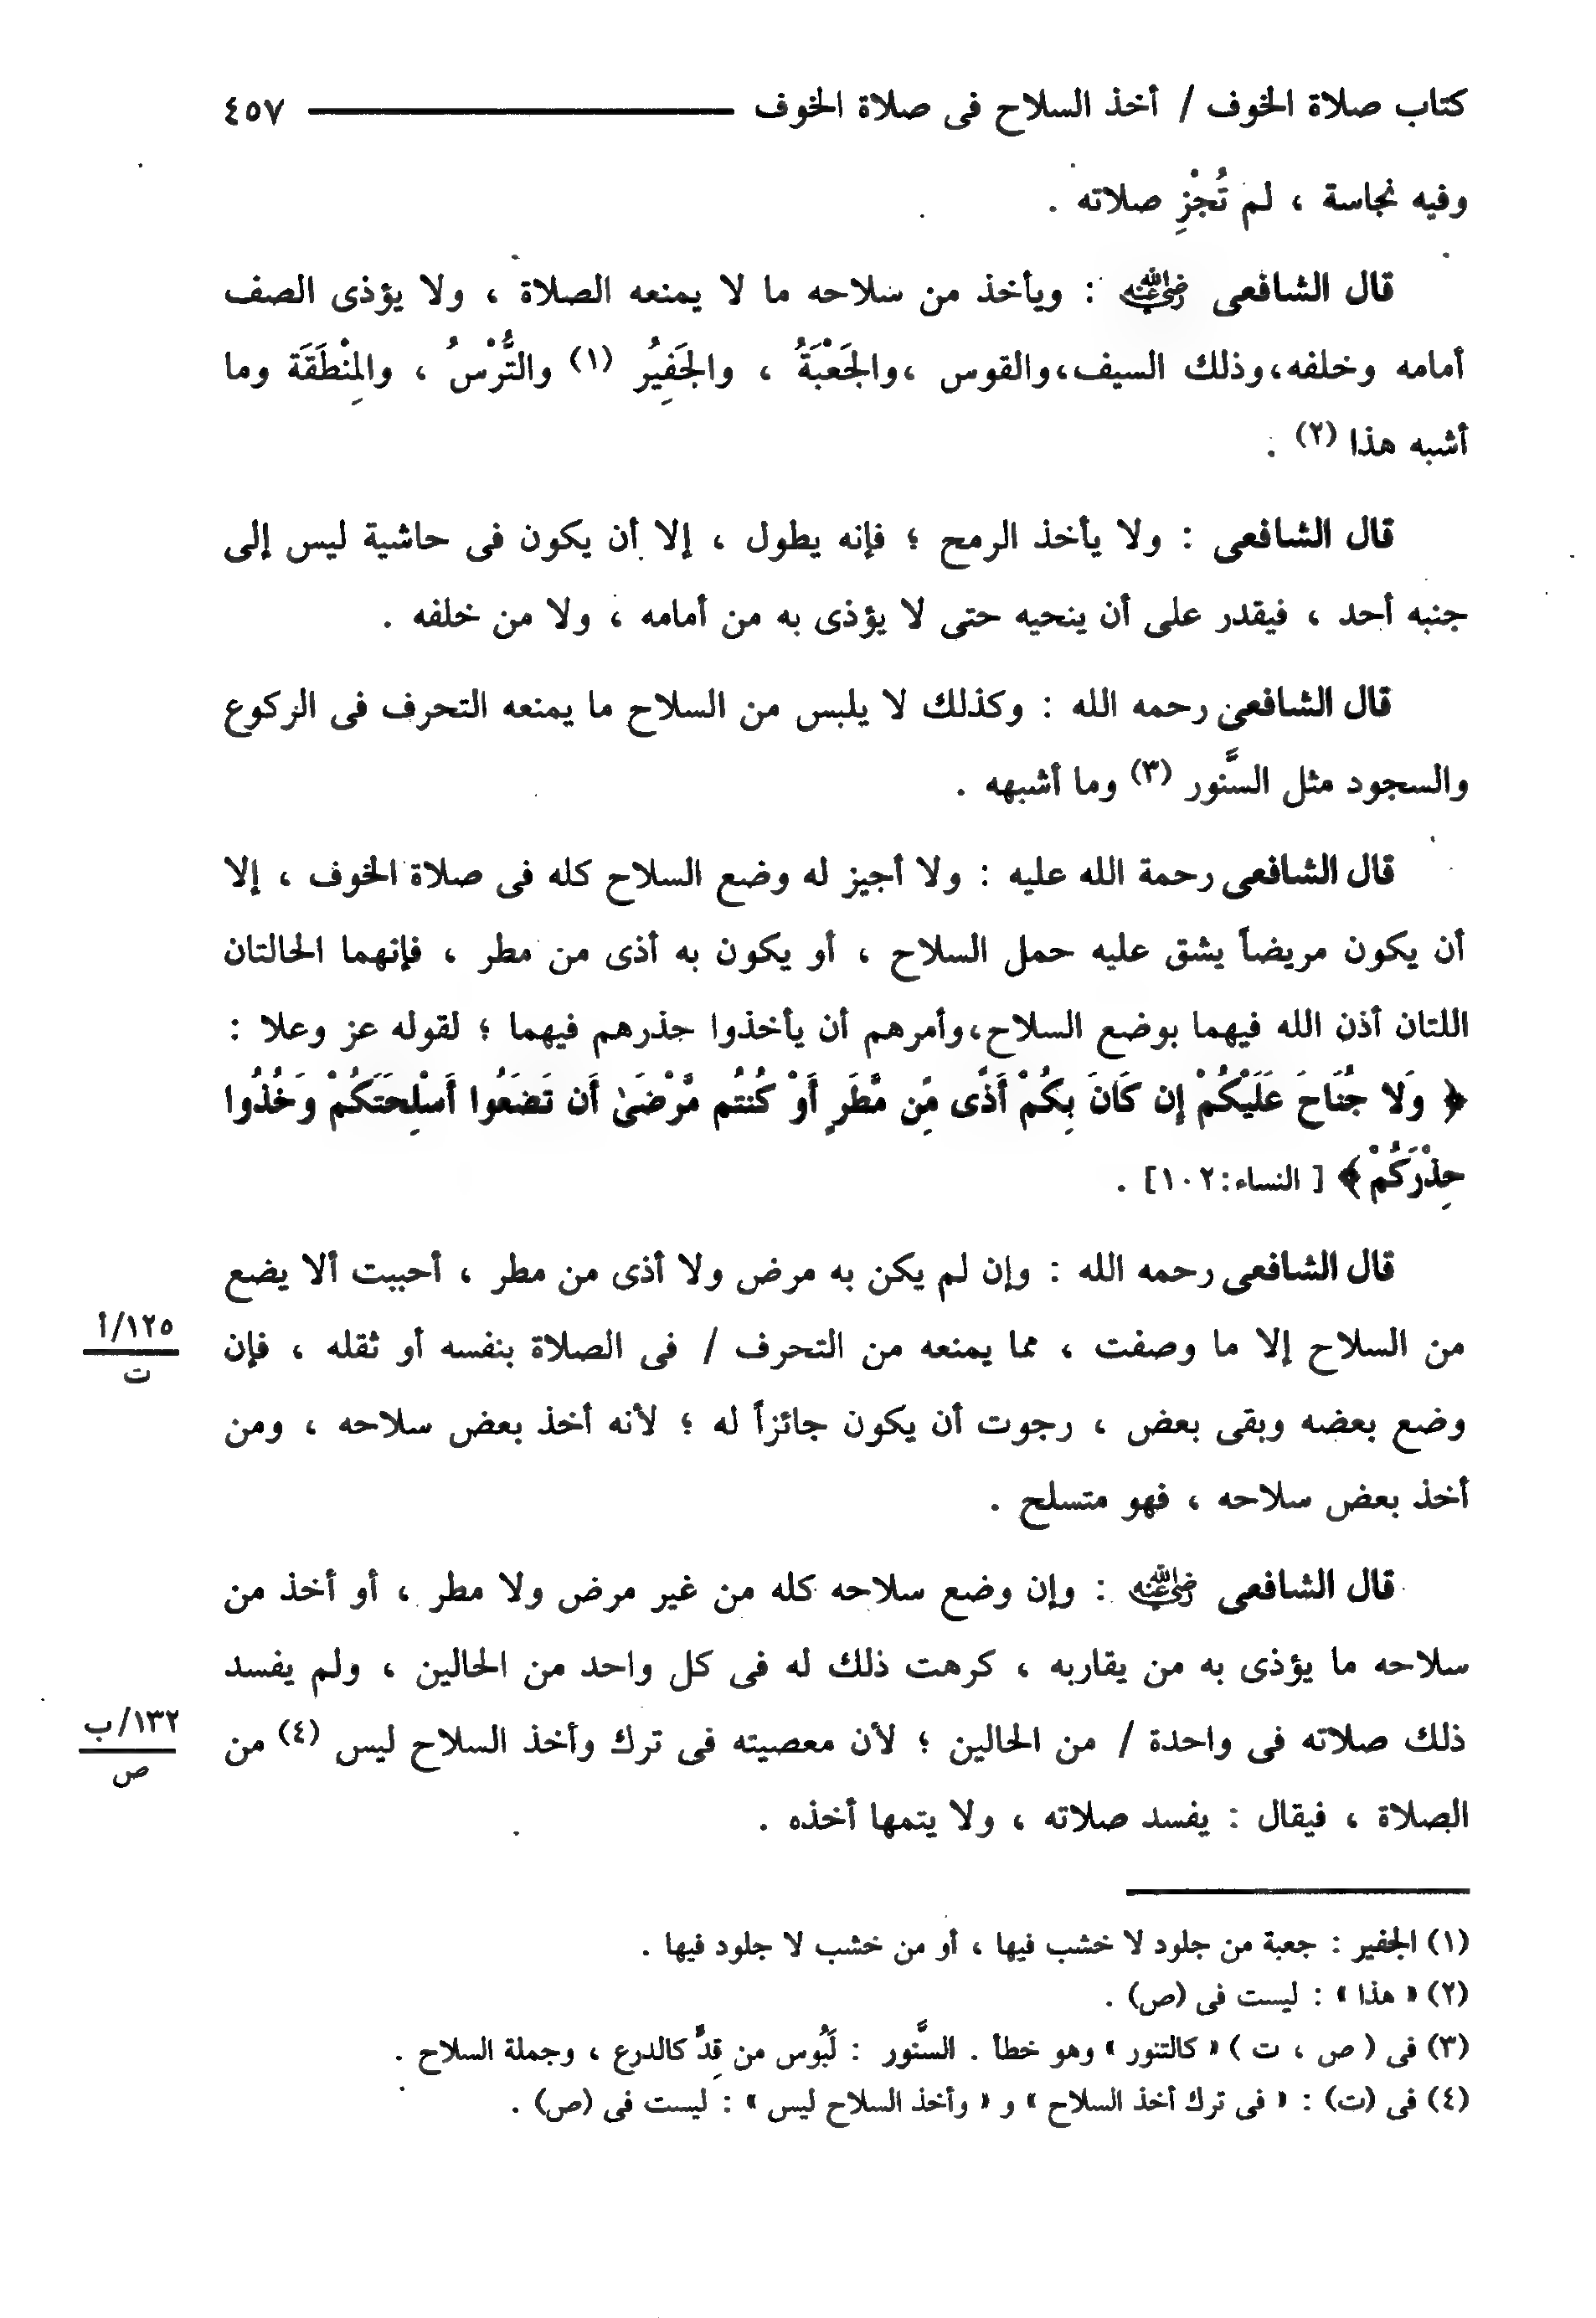 كتاب صلاة الخوف / أخذ السلاح فى صلاة الخوف ٤٥٧
وفيه نجاسة ، لم تُجْزِ صلاته .
قال الشافعى رضي الله عنه : ويأخذ من سلاحه ما لا يمنعه الصلاة ، ولا يؤذى الصف
أمامه وخلفه،وذلك السيف،والقوس ،والجَعْبَةُ ، والجَفِيُر (١) والتُّرْسُ ، والمِنْطَقَة وما
أشبه هذا (٢) .
قال الشافعى : ولا يأخذ الرمح ؛ فإنه يطول ، إلا أن يكون فى حاشية ليس إلى
جنبه أحد ، فيقدر على أن ينحيه حتى لا يؤذى به من أمامه ، ولا من خلفه .
قال الشافعى رحمه الله : وكذلك لا يلبس من السلاح ما يمنعه التحرف فى الركوع
والسجود مثل السَّنور (٣) وما أشبهه .
قال الشافعى رحمة الله عليه : ولا أجيز له وضع السلاح كله فى صلاة الخوف ، إلا
أن يكون مريضاً يشق عليه حمل السلاح ، أو يكون به أذى من مطر ، فإنهما الحالتان
اللتان أذن الله فيهما بوضع السلاح،وأمرهم أن يأخذوا حذرهم فيهما ؛ لقوله عز وعلا :
﴿ وَلا جُنَاحَ عَلَيْكُمْ إِن كَانَ بِكُمْ أَذًى مِّن مَّطَرٍ أَوْ كُنتُم مَّرْضَىٰ أَن تَضَعُوا أَسْلِحَتَكُمْ وَخُذُوا
حِذْرَكُمْ ﴾ [ النساء:١٠٢] .
قال الشافعى رحمه الله : وإن لم يكن به مرض ولا أذى من مطر ، أحببت ألا يضع
من السلاح إلا ما وصفت ، مما يمنعه من التحرف / فى الصلاة بنفسه أو ثقله ، فإن
١٢٥/أ
ت
وضع بعضه وبقى بعض ، رجوت أن يكون جائزاً له ؛ لأنه أخذ بعض سلاحه ، ومن
أخذ بعض سلاحه ، فهو متسلح .
قال الشافعى رضي الله عنه : وإن وضع سلاحه كله من غير مرض ولا مطر ، أو أخذ من
سلاحه ما يؤذى به من يقاربه ، كرهت ذلك له فى كل واحد من الحالين ، ولم يفسد
ذلك صلاته فى واحدة / من الحالين ؛ لأن معصيته فى ترك وأخذ السلاح ليس (٤) من
١٣٢/ب
ص
الصلاة ، فيقال : يفسد صلاته ، ولا يتمها أخذه .
(١) الجفير : جعبة من جلود لا خشب فيها ، أو من خشب لا جلود فيها .
(٢) « هذا » : ليست فى (ص) .
(٣) فى ( ص ، ت ) « كالتنور » وهو خطأ . السَّنَّور : لَبُوس من قِدٍّ كالدرع ، وجملة السلاح .
(٤) فى (ت) : « فى ترك أخذ السلاح » و « وأخذ السلاح ليس » : ليست فى (ص) .